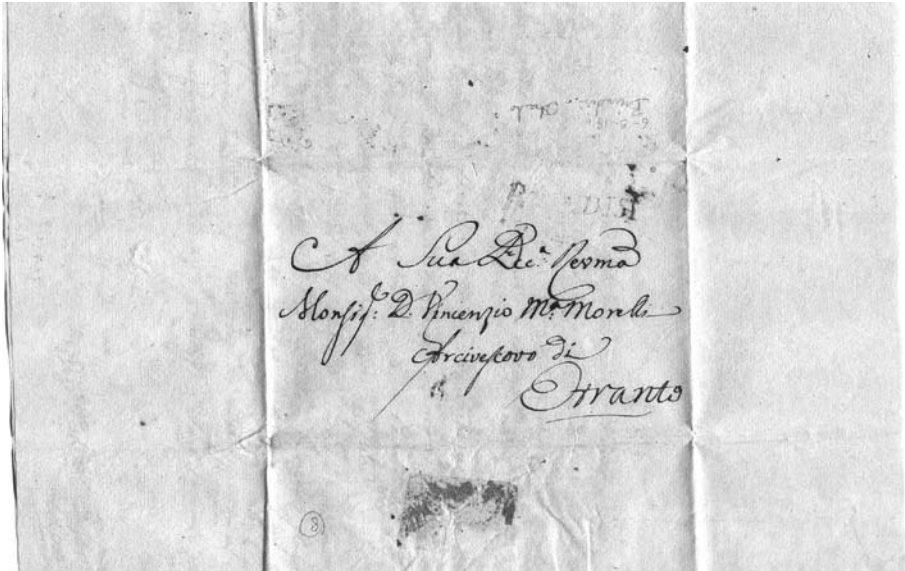 A Sua Ecc.ª Revma
Monsig.r D. Vincenzio M.ª Morelli
Arcivescovo di
Otranto
8